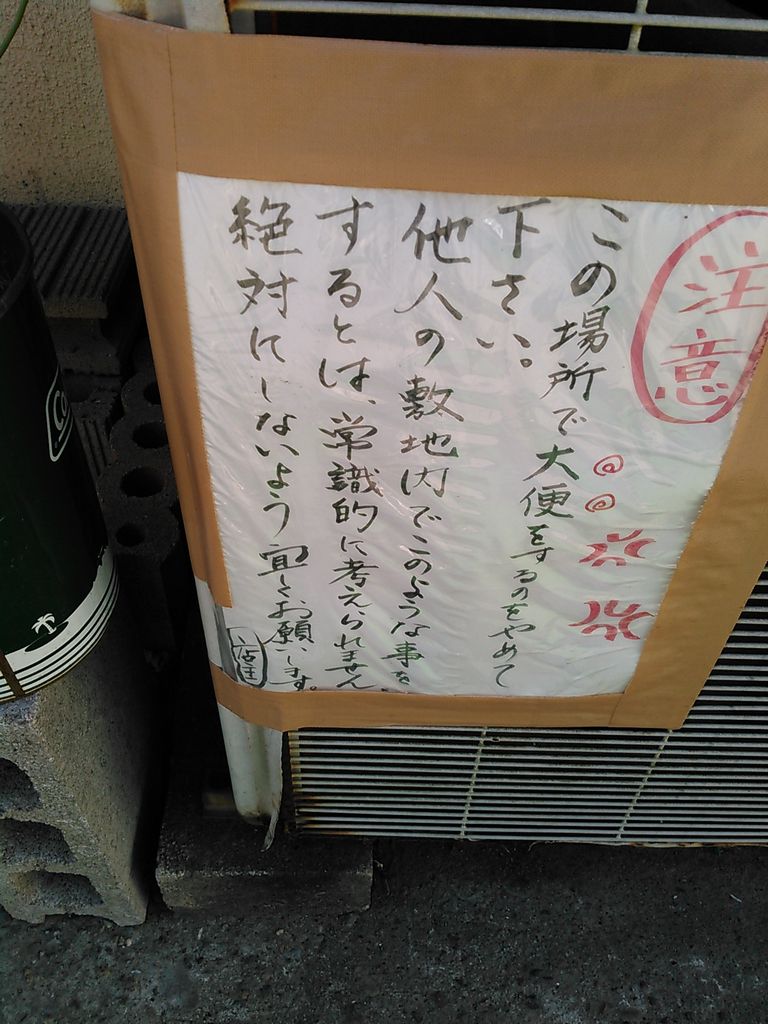 注意
この場所で大便をするのをやめて
下さい。
他人の敷地内でこのような事を
するとは、常識的に考えられません。
絶対にしないよう宜しくお願いします。
店主
Co